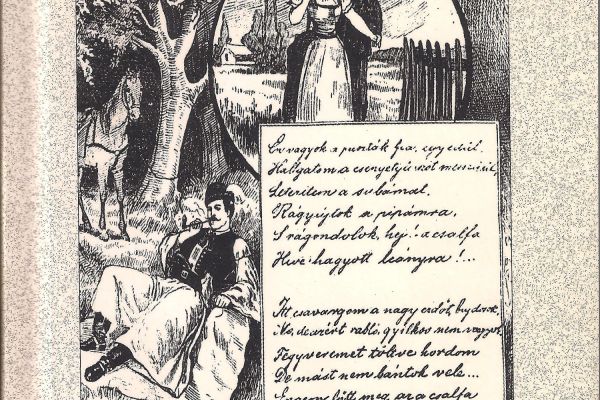 Én vagyok a puszták fia, egyedül.
Hallgatom a csengetyűszót messziről,
Leterítem a subámat,
Rágyújtok a pipámra,
S rágondolok, hej! a csalfa
hagyott leányra!...
Itt csavargom a nagy erdőt, bujdosok,
No, de azért rabló, gyilkos nem vagyok,
Fegyveremet töltve hordom
De mást nem bántok vele...
Engem lőtt meg az a csalfa